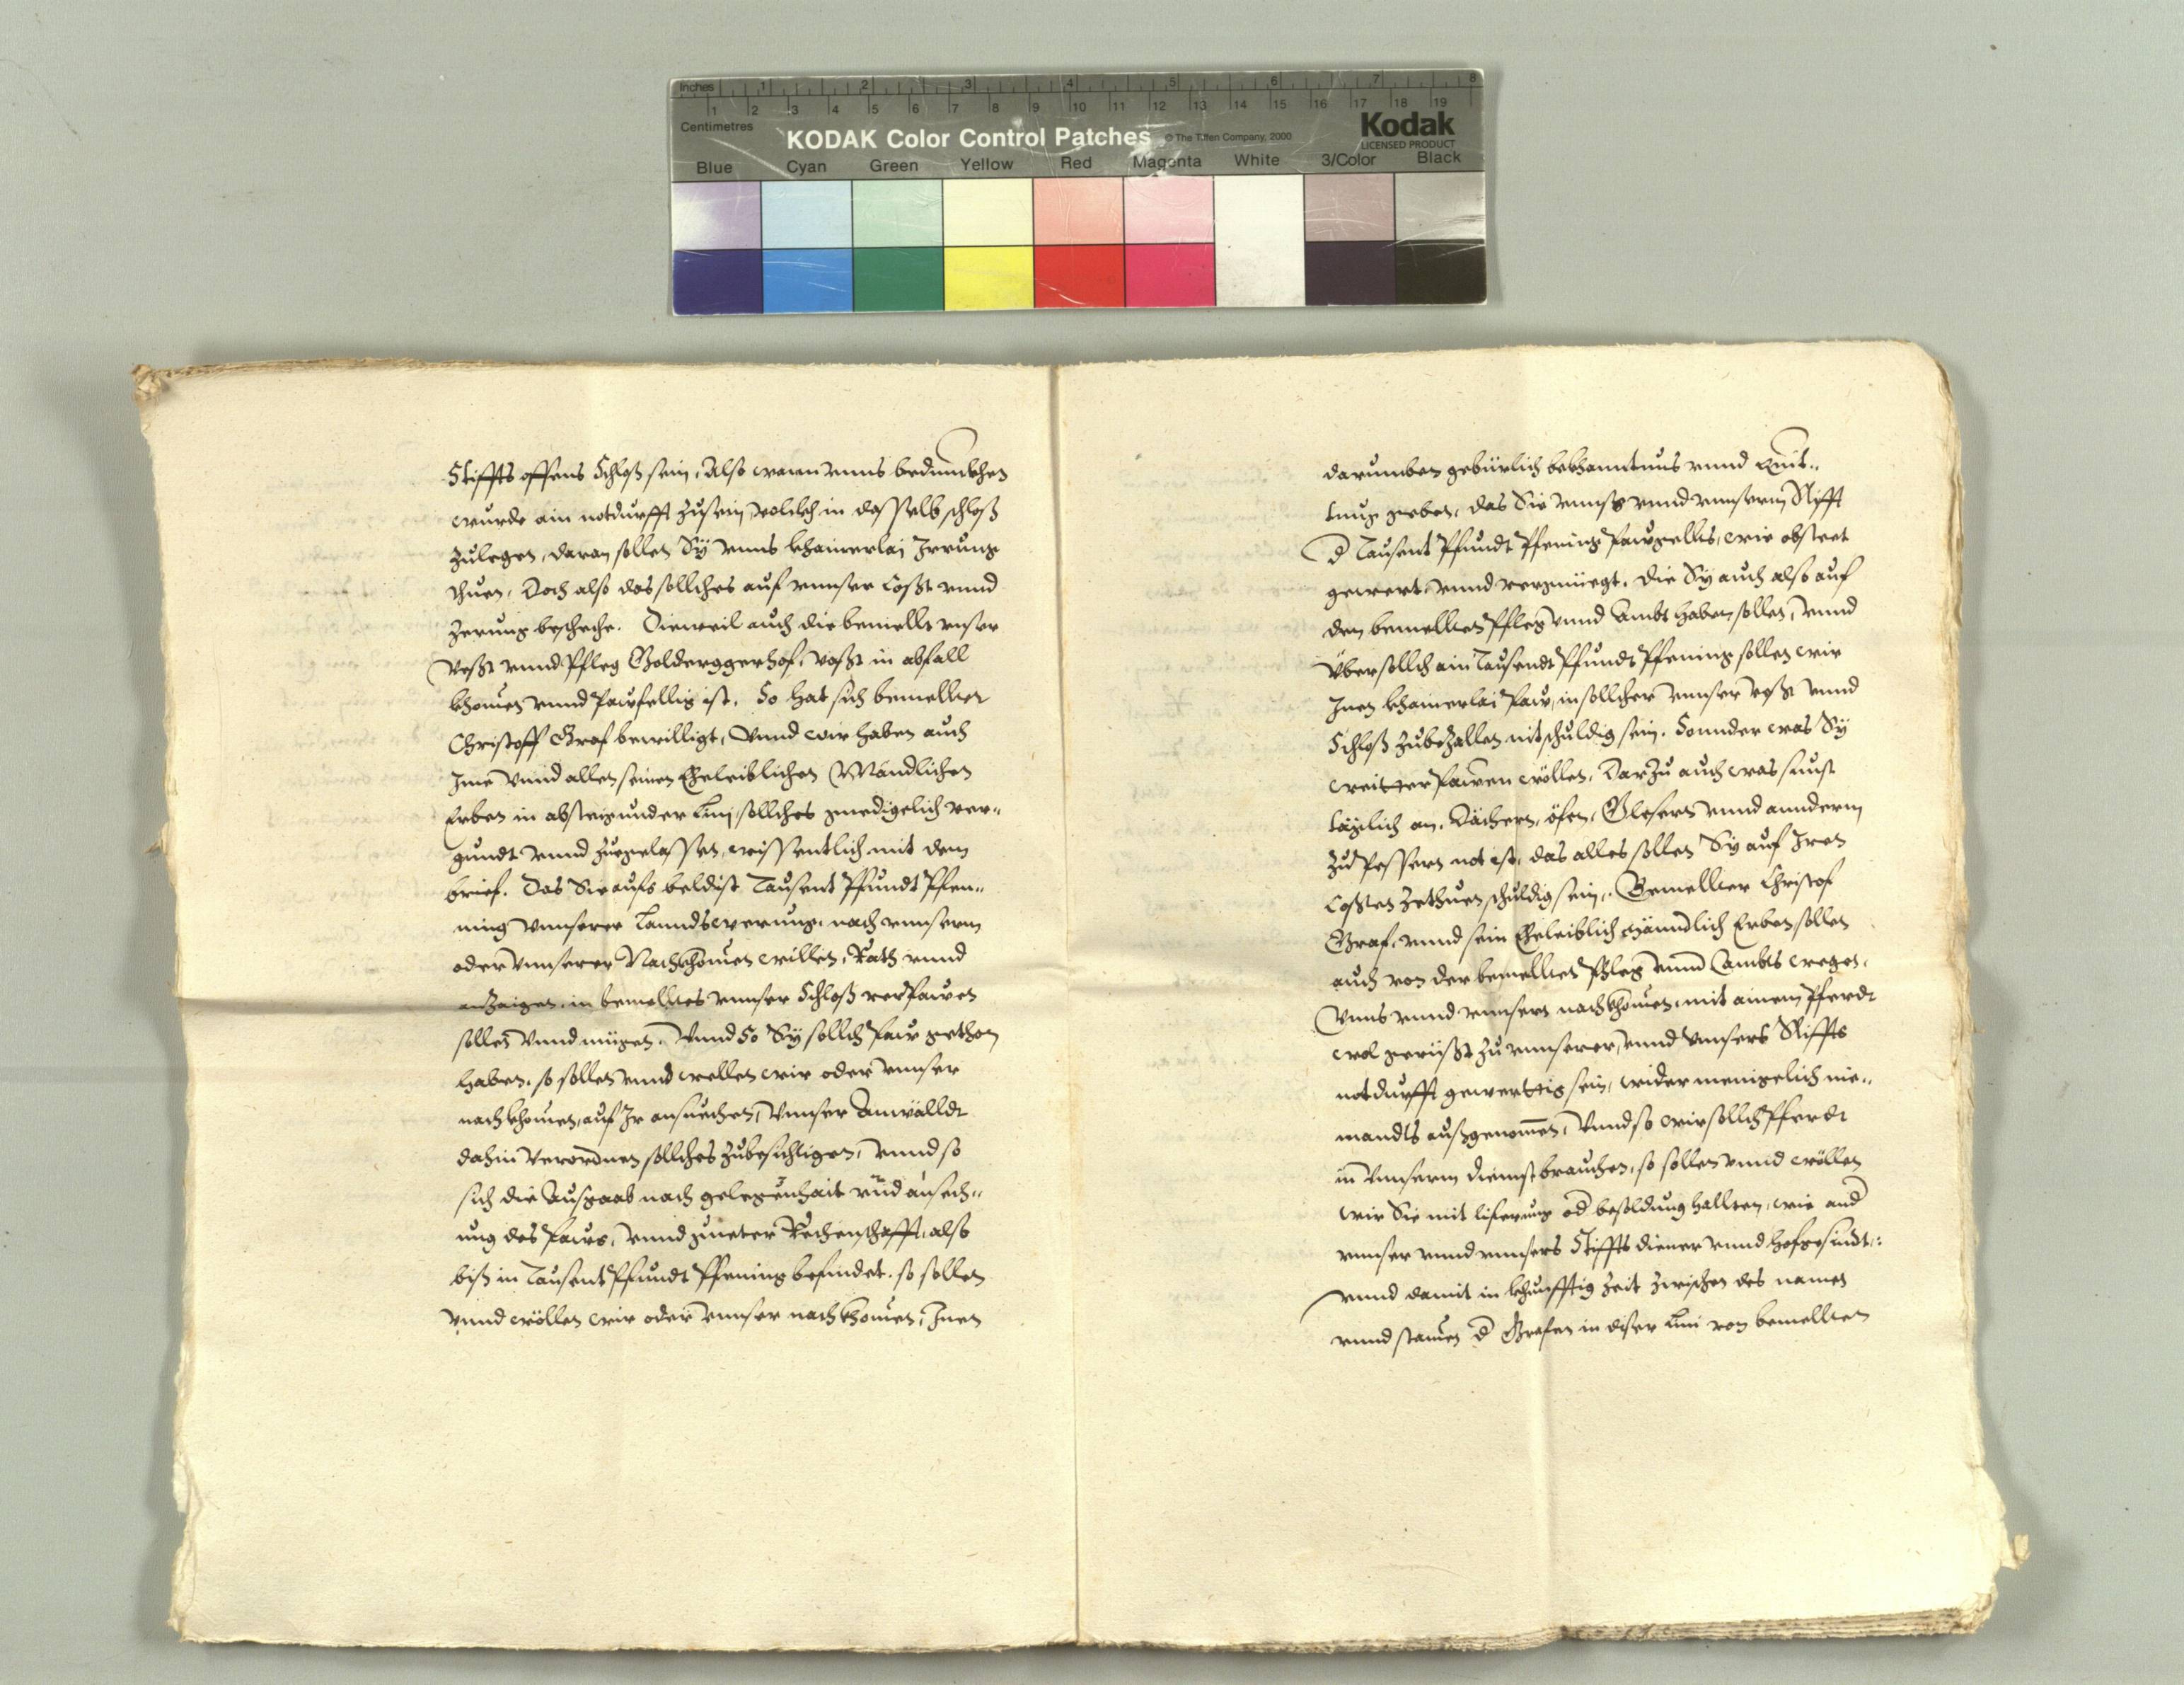 Inches 1 2 3 4 5 6 7 8
1 2 3 4 5 6 7 8 9 10 11 12 13 14 15 16 17 18 19
Centimetres
KODAK Color Control Patches © The Tiffen Company, 2000 Kodak
LICENSED PRODUCT
Blue Cyan Green Yellow Red Magenta White 3/Color Black
Stiffts offens Schloß sein, Also wann unns bedunckhen
wurde ain notdurfft zusein, volckh in dasselb schloß
zulegen, daran sollen Sÿ unns khainerlaj Irrung
thuen, Doch also das sollches auf unnser Cosst unnd
Zerung bescheche. Dieweil auch die bemellt unser
Vesst unnd Pfleg Golderggerhof, vasst in abfall
khomen unnd Pawfellig ist. So hat sich bemellter
Christoff Graf bewilligt, Unnd wir haben auch
Ime Unnd allen seinen Eheleiblichen Mandlichen
Erben in absteigunder Linj, sollches gnedigelich ver„
gundt unnd zuegelassen, wissentlich mit dem
brief. Das Sie aufs beldist Tausent Pfundt Pfen„
ning Unnserer Lanndswerung, nach unnserm
oder Unnserer Nachkhomen willen, Rath unnd
anZaigen, in bemelltes unnser Schloß verPawen
sollen Unnd mügen. Unnd So Sÿ sollch Paw gethon
haben, so sollen unnd wellen wir oder unnser
nachkhomen, auf Ir ansuechen, Unnser Anwälldt
dahin Verordnen sollches zubesichtigen, unnd so
sich die Ausgaab nach gelegenhait und ansech„
ung des Paws, unnd gueter Rechenschafft, also
biß in Tausent Pfundt Pfening befindet, so sollen
Unnd wöllen wir oder unnser nachkhomen, Inen
darumben gebürlich bekhanntnus unnd Quit„
tung geben, das Sie unnß unnd unnserm Stifft
d Tausent Pfundt Pfening Pawgellts, wie obsteet
gewert unnd vergnüegt. Die Sy auch also auf
den bemellten Pfleg unnd Ambt haben sollen, unnd
Über sollch ain Tausendt Pfundt Pfening sollen wir
Inen khainerlai Paw, in sollcher unnser vesst unnd
Schloß zubeZallen nit schuldig sein. Sonnder was Sÿ
weitter Pawen wöllen, DarZu auch was sunst
täglich an Dächern, öfen, Glesern unnd annderm
zu Pessern not ist, das alles sollen Sy auf Iren
Cossten zethuen schuldig sein. Bemellter Christof
Graf, unnd sein Eheleiblich Männdlich Erben sollen
auch von der bemellten Pfleg unnd Ambts wegen,
Unns unnd unnsern nachkhomen, mit ainem Pferdt
wol gerüsst zu unnserer, unnd Unnsers Stiffts
notdurfft gewerttig sein, wider menigelich nie„
mandts außgenomen, Unnd so wir sollch Pferdt
in Unnserm dienst brauchen, so sollen unnd wöllen
wir Sie mit liferung od besoldung hallten, wie and
unnser unnd unnsers Stiffts diener unnd hofgesindt„
unnd damit in khunfftig Zeit zwischen des namen
unnd stamen d Grafen in diser Lini von bemellten